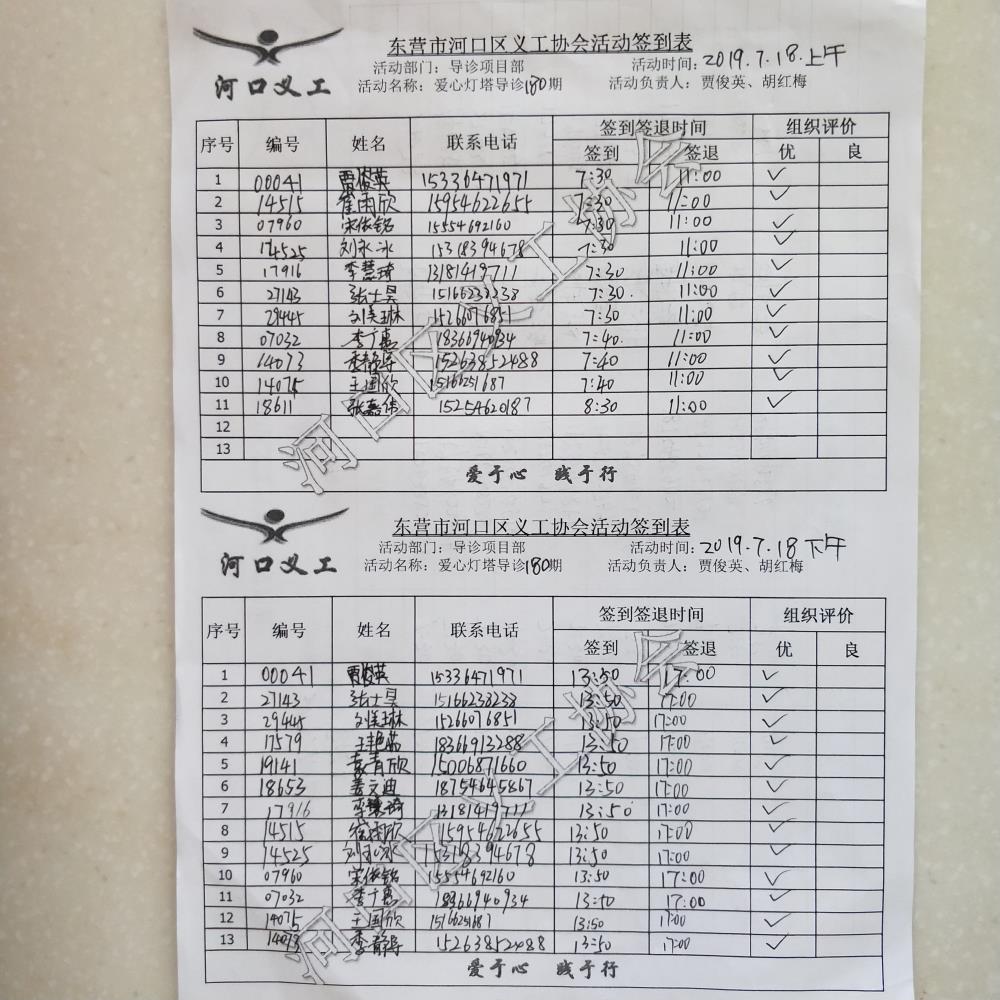 河口义工
东营市河口区义工协会活动签到表
活动部门：导诊项目部 活动时间：2019.7.18.上午
活动名称：爱心灯塔导诊180期 活动负责人：贾俊英、胡红梅
序号 编号 姓名 联系电话 签到签退时间 组织评价
签到 签退 优 良
1 00041 贾俊英 15336471971 7:30 11:00 ✓
2 14515 崔雨欣 15954622655 7:30 11:00 ✓
3 07960 宋依铭 15554692160 7:30 11:00 ✓
4 14525 刘永冰 15318394678 7:30 11:00 ✓
5 17916 李慧琦 13181419711 7:30 11:00 ✓
6 27143 张士昊 15166238238 7:30. 11:00 ✓
7 29445 刘美琳 15266076851 7:30 11:00 ✓
8 07032 李广惠 18366940934 7:40. 11:00 ✓
9 14073 15263852488 7:40 11:00 ✓
10 14075 王国欣 15166251687 7:40 11:00 ✓
11 18611 张嘉伟 15254620187 8:30 11:00 ✓
12
13
爱于心 践于行
河口区义工协会
河口义工
东营市河口区义工协会活动签到表
活动部门：导诊项目部 活动时间：2019.7.18 下午
活动名称：爱心灯塔导诊180期 活动负责人：贾俊英、胡红梅
序号 编号 姓名 联系电话 签到签退时间 组织评价
签到 签退 优 良
1 00041 贾俊英 15336471971 13:50 17:00 ✓
2 27143 张士昊 15166238238 13:50 17:00 ✓
3 29445 刘美琳 15266076851 13:50 17:00 ✓
4 17579 王艳茹 18366913288 13:50 17:00 ✓
5 19141 袁青欣 15006871660 13:50 17:00 ✓
6 18653 姜文迪 18754645867 13:50 17:00 ✓
7 17916 李慧琦 13181419711 13:50 17:00 ✓
8 14515 崔雨欣 15954622655 13:50 17:00 ✓
9 14525 刘永冰 15318394678 13:50 17:00 ✓
10 07960 宋依铭 15554692160 13:50 17:00 ✓
11 07032 李广惠 18366940934 13:50 17:00 ✓
12 14075 王国欣 15166251687 13:50 17:00 ✓
13 14073 15263852488 13:50 17:00 ✓
爱于心 践于行
河口区义工协会